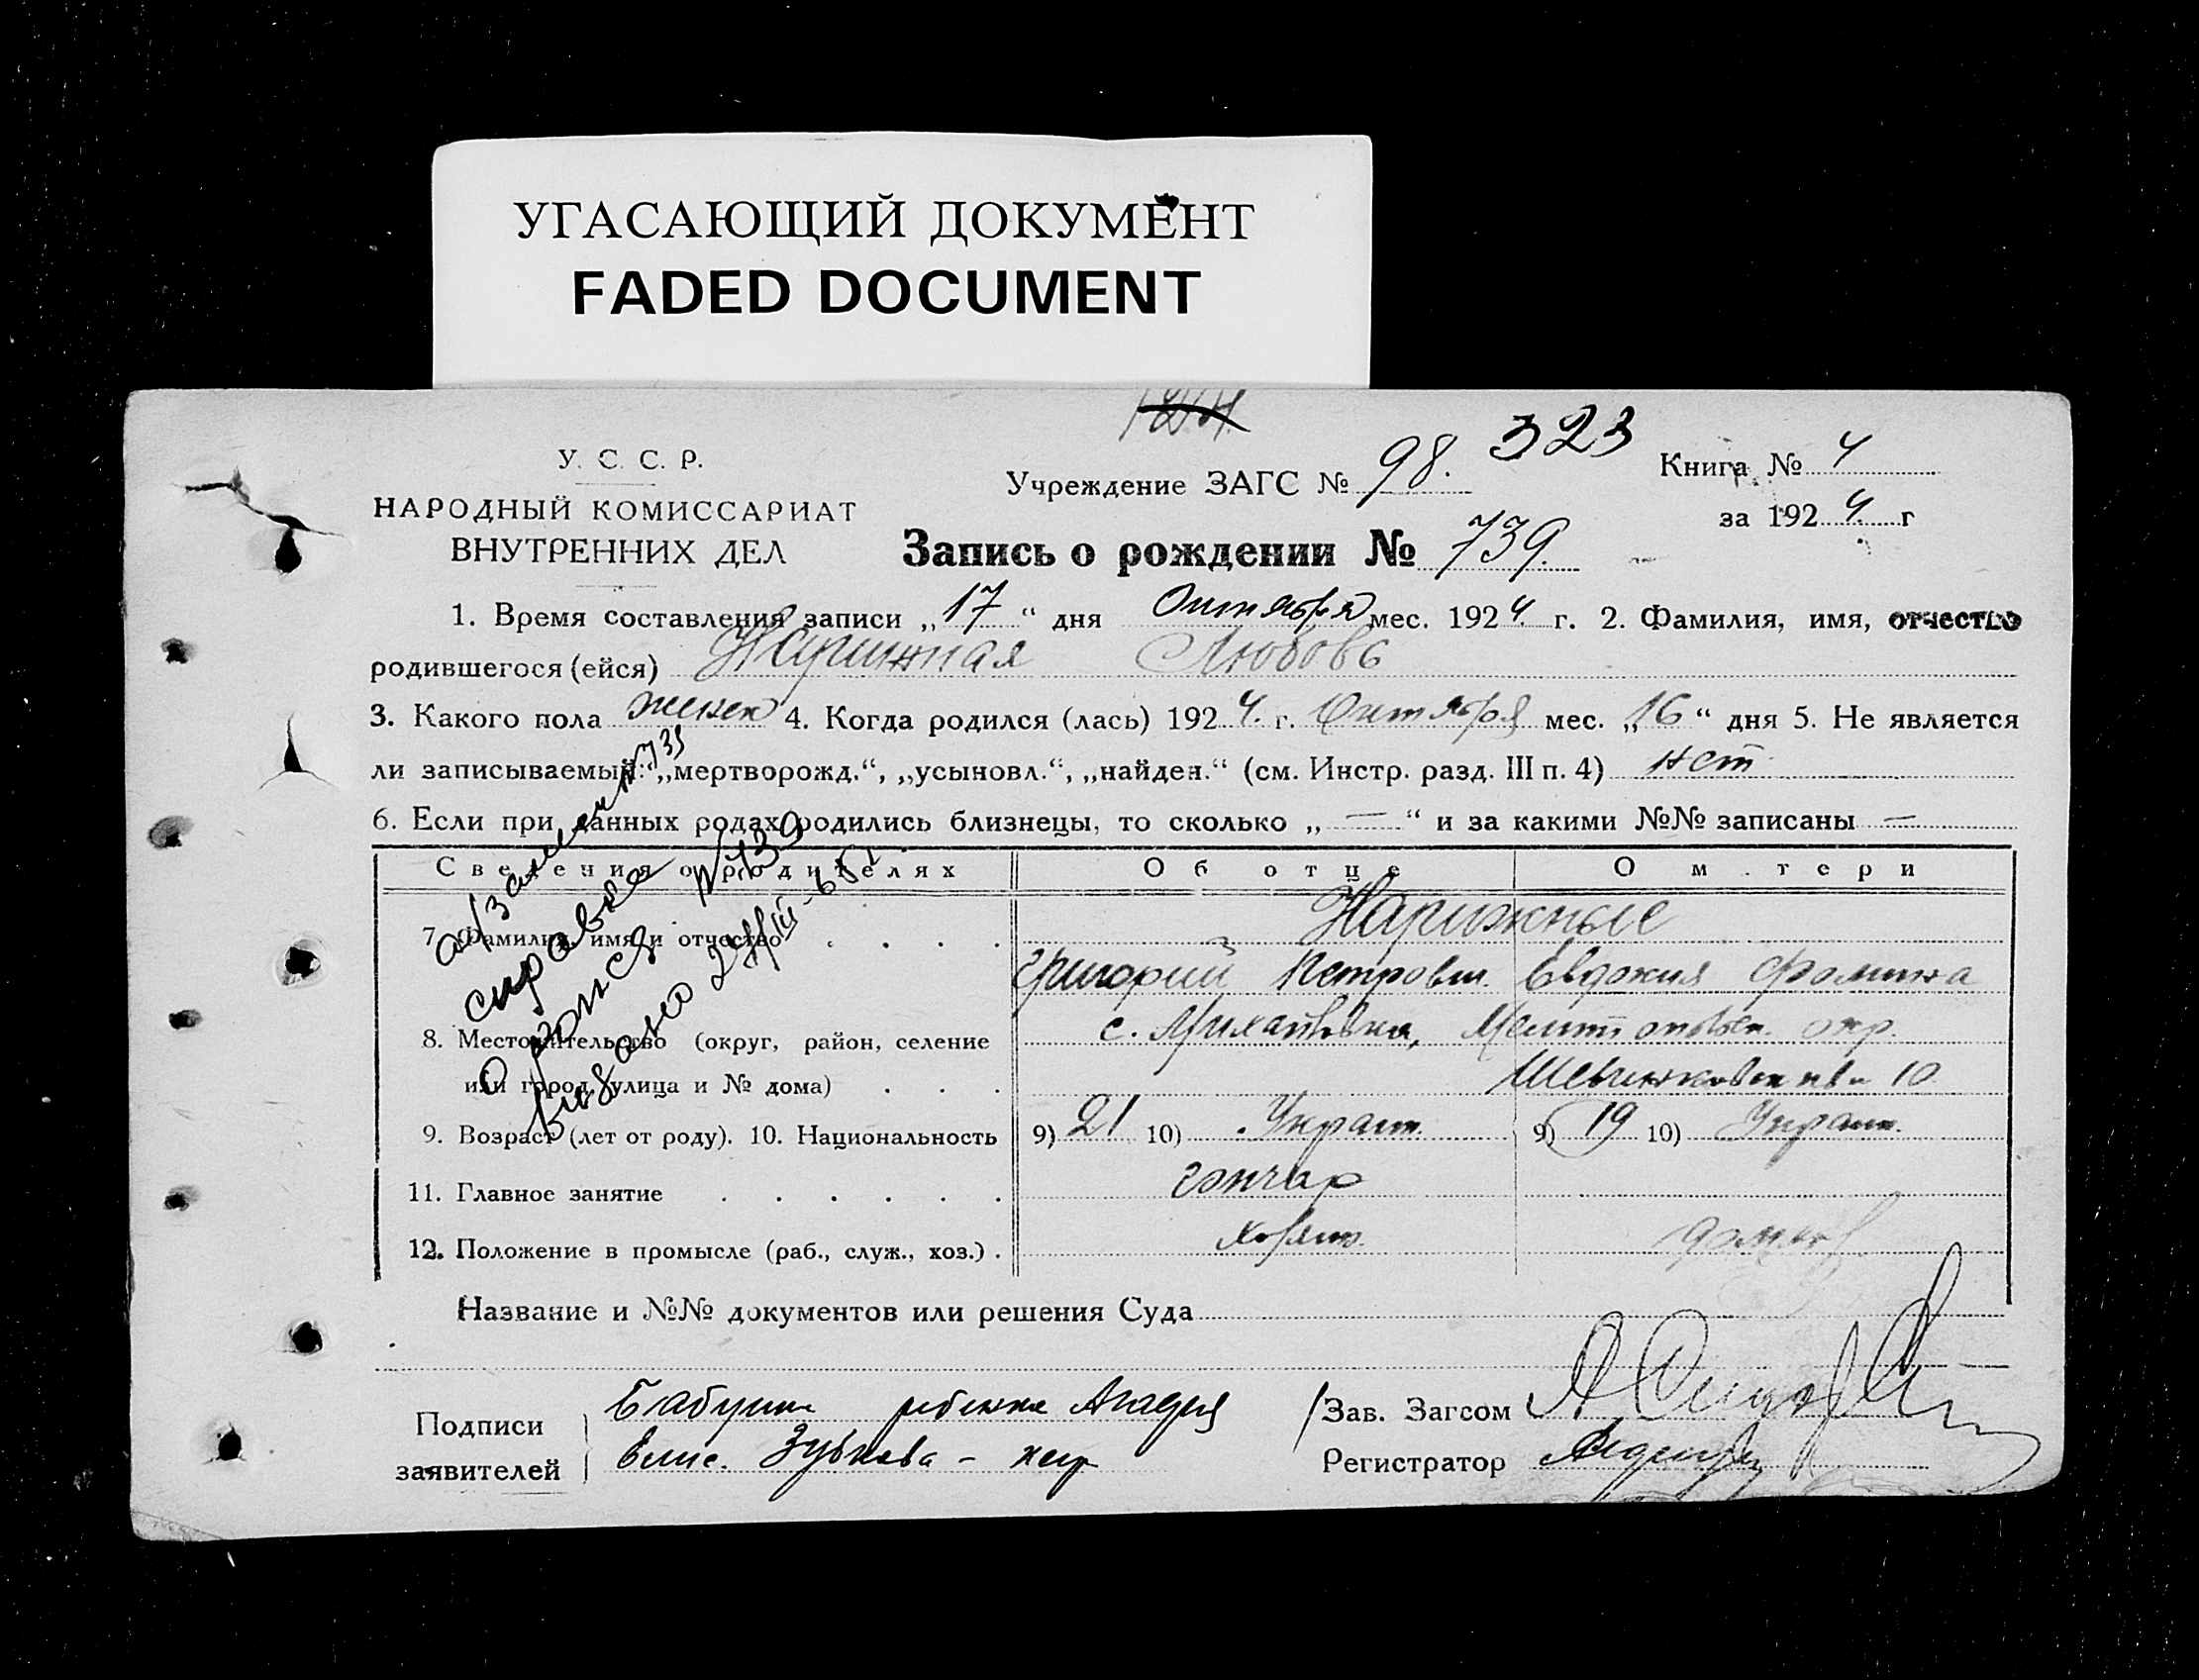 УГАСАЮЩИЙ ДОКУМЕНТ
FADED DOCUMENT
У. С. С. Р.
НАРОДНЫЙ КОМИССАРИАТ
ВНУТРЕННИХ ДЕЛ
Учреждение ЗАГС № 98. 323
Книга № 4
за 1924 г
Запись о рождении № 739.
1. Время составления записи „17“ дня Октября мес. 1924 г. 2. Фамилия, имя, отчество
родившегося (ейся) Нарижная Любовь
3. Какого пола женск 4. Когда родился (лась) 1924. г. Октября мес. „16“ дня 5. Не является
ли записываемый: „мертворожд.“, „усыновл.“, „найден.“ (см. Инстр. разд. III п. 4) нет
6. Если при данных родах родились близнецы, то сколько „ — “ и за какими №№ записаны —
Сведения о родителях Об отце О м тери
7. Фамилия, имя и отчество Нарижные
Григорий Петрович. Евдокия Фомина
8. Местожительство (округ, район, селение с. Михайловка, Мелитопольск. окр.
или город, улица и № дома) 10
9. Возраст (лет от роду). 10. Национальность 9) 21 10) Украин. 9) 19 10) Украин.
11. Главное занятие гончар
12. Положение в промысле (раб., служ., хоз.) хозяин.
Название и №№ документов или решения Суда
Подписи
заявителей
Бабушка ребенка
Елис. Зубкова –
Зав. Загсом
Регистратор
справка №739
выдана